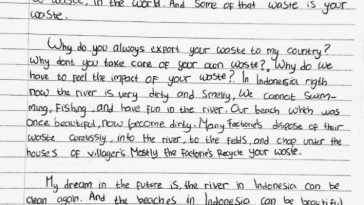 waste, in the world. And some of that waste is your
waste.
Why do you always export your waste to my country?
Why dont you take care of your own waste?, Why do we
have to feel the impact of your waste?. In Indonesia rigth
now the river is very dirty and smelly, We cannot swim-
ming, Fishing, and have fun in the river. Our beach which was
once beautiful, now become dirty. Many Factorie's dispose of their
waste carelessly, into the river, to the fields, and chop under the
houses of villager's Mostly the Factorie's Recycle your waste.
My dream in the future is, the river in Indonesia can be
clean again. And the beaches in Indonesia can be beautiful